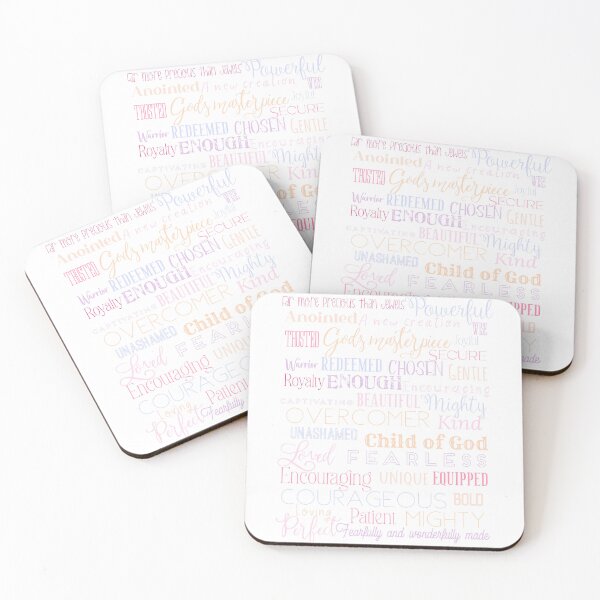 Far more precious than jewels Powerful
Anointed A new creation WISE
TRUSTED God's masterpiece Joyful
SECURE
Warrior REDEEMED CHOSEN GENTLE
Royalty ENOUGH
CAPTIVATING BEAUTIFUL Mighty
OVERCOMER
Far more precious than jewels Powerful
Anointed A new creation WISE
TRUSTED God's masterpiece Joyful
SECURE
Warrior REDEEMED CHOSEN GENTLE
Royalty ENOUGH Encouraging
CAPTIVATING BEAUTIFUL Mighty
OVERCOMER Kind
UNASHAMED Child of God
Loved FEARLESS
EQUIPPED
BOLD
made
Far more precious than jewels Powerful
Anointed A new creation
TRUSTED God's masterpiece
SECURE
Warrior REDEEMED CHOSEN GENTLE
Royalty ENOUGH
CAPTIVATING BEAUTIFUL Mighty
OVERCOMER Kind
UNASHAMED Child of God
Loved FEARLESS
Encouraging UNIQUE
COURAGEOUS
Loving Patient
Perfect Fearfully
Far more precious than jewels Powerful
Anointed A new creation WISE
TRUSTED God's masterpiece Joyful
SECURE
Warrior REDEEMED CHOSEN GENTLE
Royalty ENOUGH Encouraging
CAPTIVATING BEAUTIFUL Mighty
OVERCOMER Kind
UNASHAMED Child of God
Loved FEARLESS
Encouraging UNIQUE EQUIPPED
COURAGEOUS BOLD
Loving Patient MIGHTY
Perfect Fearfully and wonderfully made